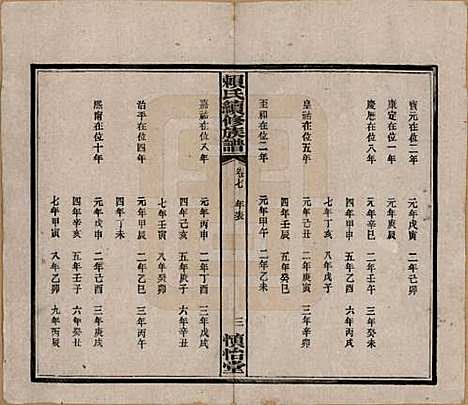 寶元在位二年
元年戊寅 二年己卯
康定在位一年
元年庚辰
慶歷在位八年
元年辛巳 二年壬午 三年癸未
四年甲申 五年乙酉 六年丙戌
七年丁亥 八年戊子
皇祐在位五年
元年己丑 二年庚寅 三年辛卯
四年壬辰 五年癸巳
至和在位二年
元年甲午 二年乙未
賴氏續修族譜
卷七 年表
三
慎怡堂
嘉祐在位八年
元年丙申 二年丁酉 三年戊戌
四年己亥 五年庚子 六年辛丑
七年壬寅 八年癸卯
治平在位四年
元年甲辰 二年乙巳 三年丙午
四年丁未
熙甯在位十年
元年戊申 二年己酉 三年庚戌
四年辛亥 五年壬子 六年癸丑
七年甲寅 八年乙卯 九年丙辰